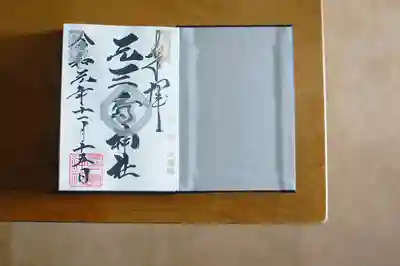 奉拝
元三島神社
令和元年十一月十五日